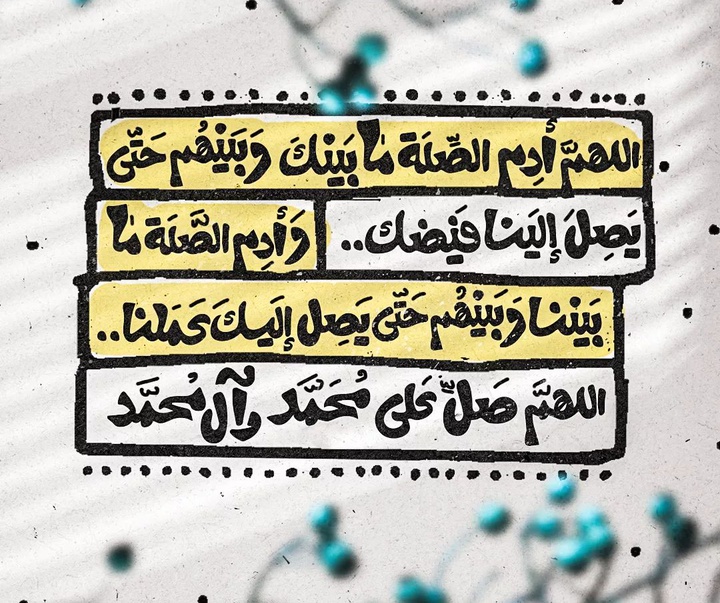 اللهمَّ أَدِم الصِّلَة ما بَينكَ وَبَينِهُم حَتّى
يَصِلَ إلَينا فَيضك.. وَأَدِم الصَّلَة ما
بَيننا وَبَينِهُم حَتّى يَصِل إلَيكَ عَمَلنا..
اللهمَّ صَلِّ عَلى مُحَمَّد وَآل مُحمَّد